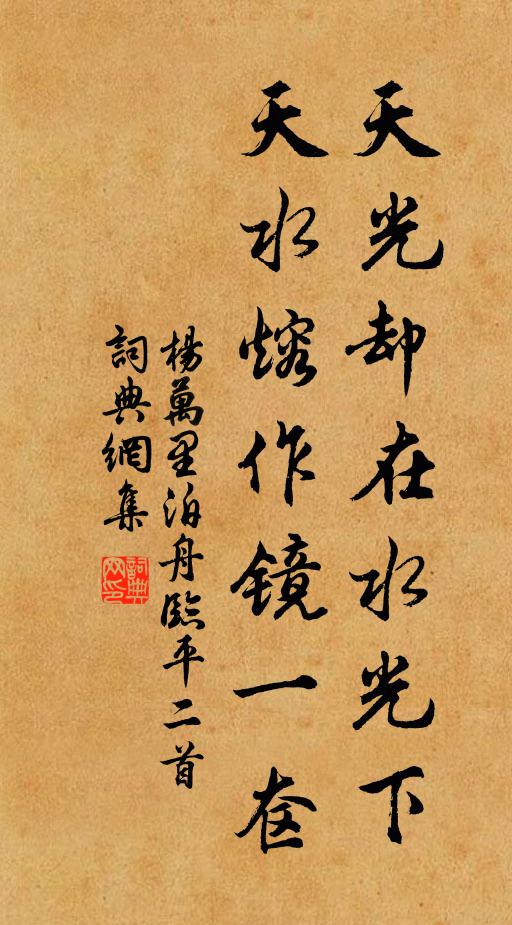 天光却在水光下
天水熔作镜一奁
楊萬里泊舟臨平二首
詞典網集
詞典网印